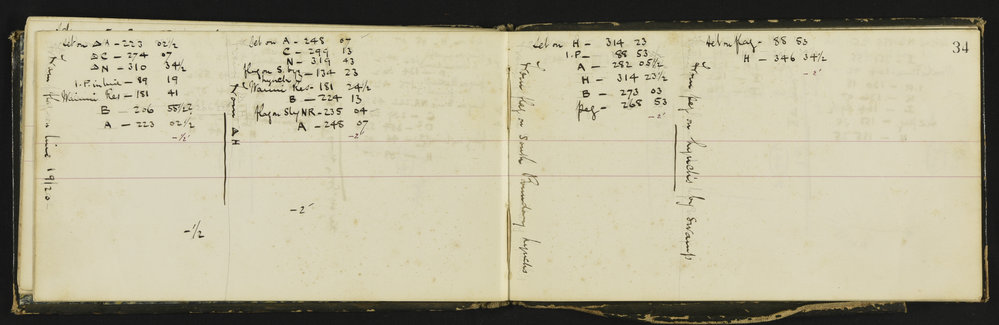 Set on ΔA - 223 02½
ΔC - 274 07
ΔN - 310 34½
I.P. in line - 89 19
Waimii Res - 181 41
B - 206 55½
A - 223 02½
-½'
-½
line 19/20
Set on A - 248 07
C - 299 13
N - 319 43
flag on S. bdy Lynch - 134 23
Waimii Res - 181 24½
B - 224 13
flag on Sly NR - 235 04
A - 248 07
-2'
-2'
From ΔH
Set on H - 314 23
I.P - 88 53
A - 282 05½
H - 314 23½
B - 273 03
peg - 268 53
-2'
From peg on South Boundary Lynchs
Set on peg - 88 53
H - 346 34½
-2'
From peg on Lynch's by Swamp
34